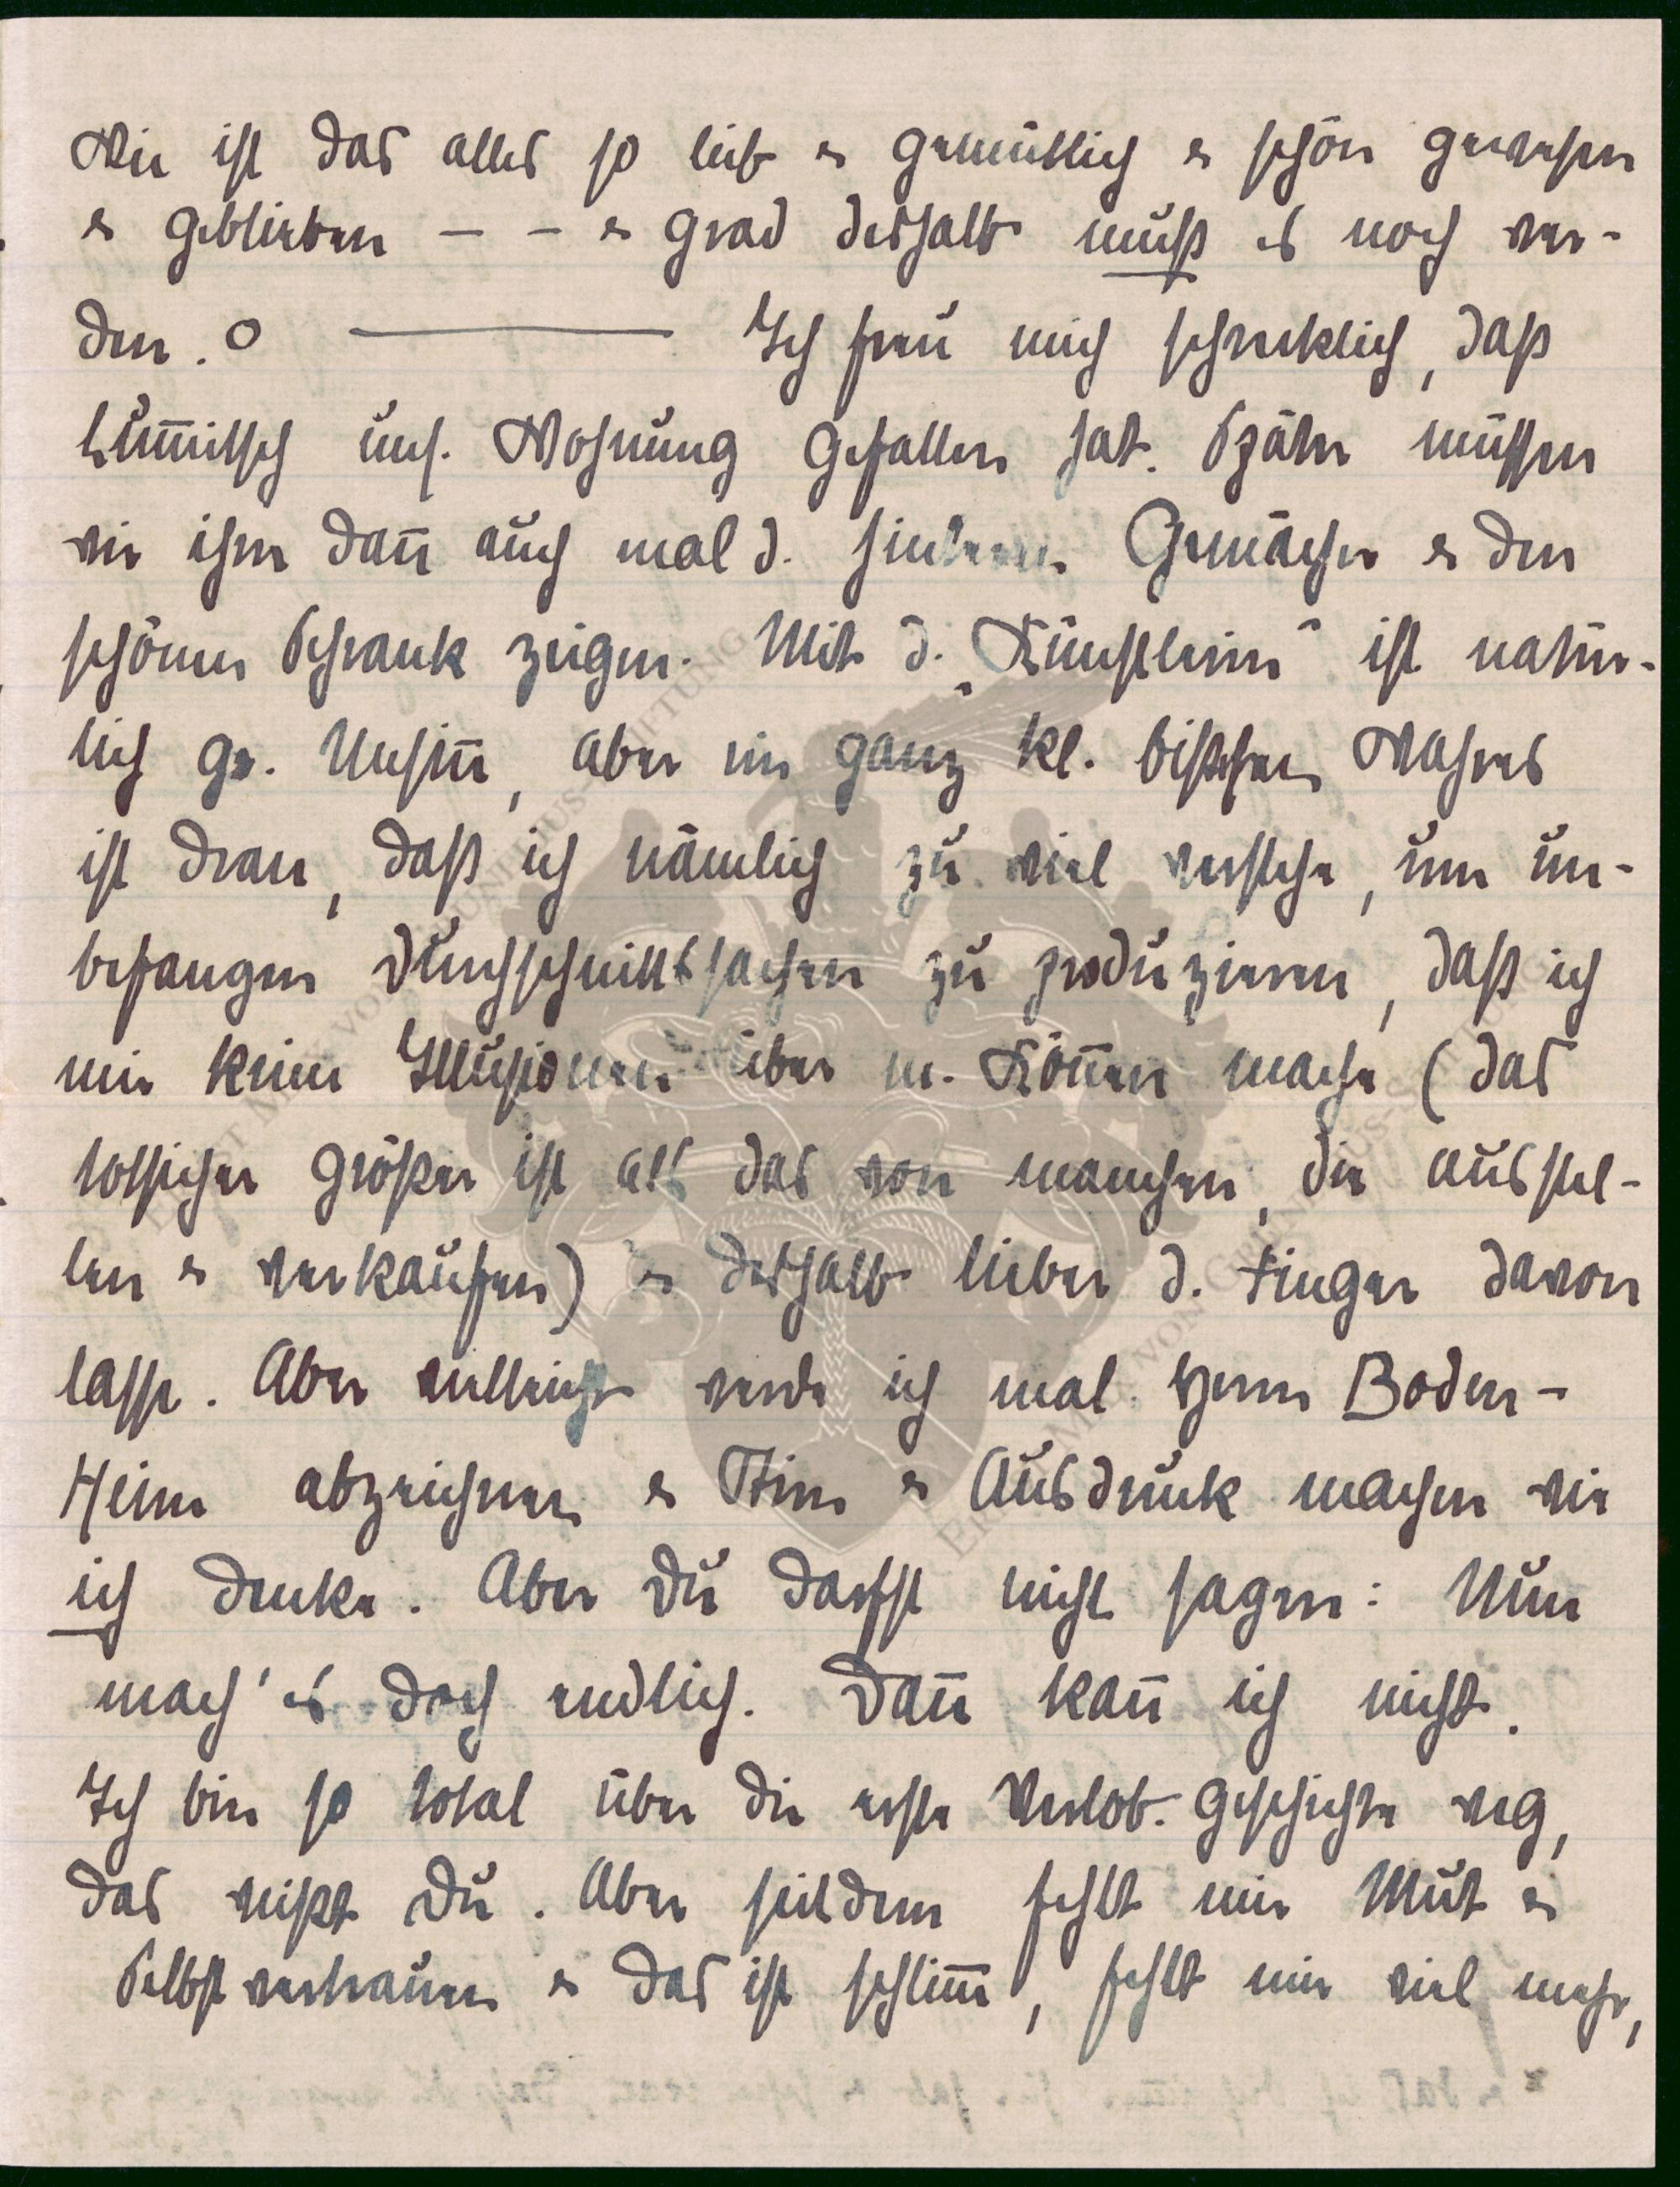 Wie ist das alles so lieb & gemütlich & schön gewesen
& geblieben – – & grad deshalb muß es noch wer-
den. O ——— Ich freu mich schrecklich, daß
uns. Wohnung gefallen hat. Später müssen
wir ihm dañ auch mal d. hinteren Gemächer & den
schönen Schrank zeigen. Mit d. „Künstlerin“ ist natür-
lich gr. Unsiñ, aber ein ganz kl. bißchen Wahres
ist dran, daß ich nämlich zu viel verstehe, um un-
befangen Durchschnittssachen zu produzieren, daß ich
mir keine Illusionen über m. Köñen mache (das
todsicher größer ist als das von manchen, die ausstel-
len & verkaufen) & deshalb lieber d. Finger davon
lasse. Aber vielleicht werde ich mal Herrn Boden-
Heim abzeichnen & Stirn & Ausdruck machen wie
ich denke. Aber Du darfst nicht sagen: Nun
mach' es doch endlich. Dañ kañ ich nicht.
Ich bin so total über die erste Verlob. Geschichte weg,
das weißt Du. Aber seitdem fehlt mir Mut &
Selbstvertrauen & das ist schlim̄, fehlt mir viel mehr,